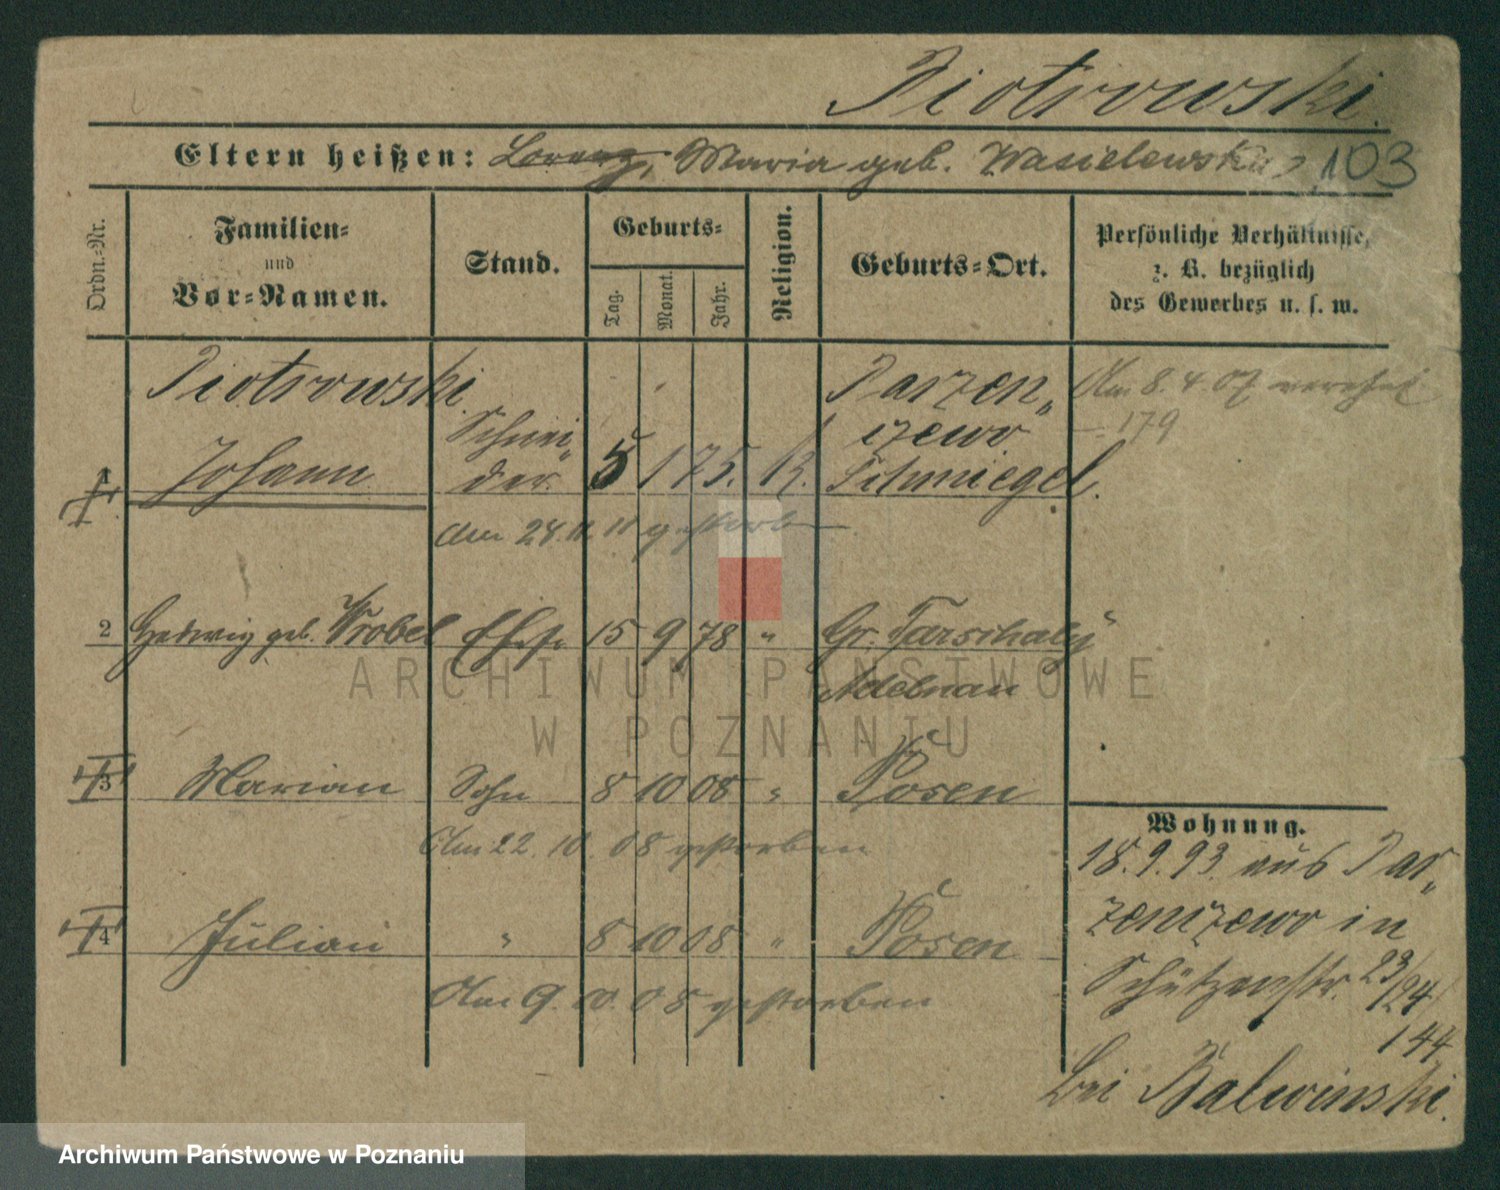 Piotrowski.
Eltern heißen: Lorenz, Maria geb. Wasielewska, 103
Ordn.-Nr.
Familien-
und
Vor-Namen.
Stand.
Geburts-
Tag.
Monat.
Jahr.
Religion.
Geburts-Ort.
Persönliche Verhältnisse,
z. B. bezüglich
des Gewerbes u. s. w.
Piotrowski.
Johann
Schnei-
der.
5 1 75. K.
Parzen-
czewo
Schmiegel.
Am 8.4.07 verehel.
179
Am 28.11.11 gestorben
2 Hedwig geb. Wrobel Ehefr. 15 9 78 " Gr. Tarschaly
Adelnau
3 Marian Sohn 8 10 08 " Posen
Am 22.10.08 gestorben
4 Julian " 8 10 08 " Posen
Am 9.10.08 gestorben
Wohnung.
18.9.93. aus Par-
zenczewo in
Schützenstr. 23/24/
144
bei Balwinski.
ARCHIWUM PAŃSTWOWE
W POZNANIU
Archiwum Państwowe w Poznaniu